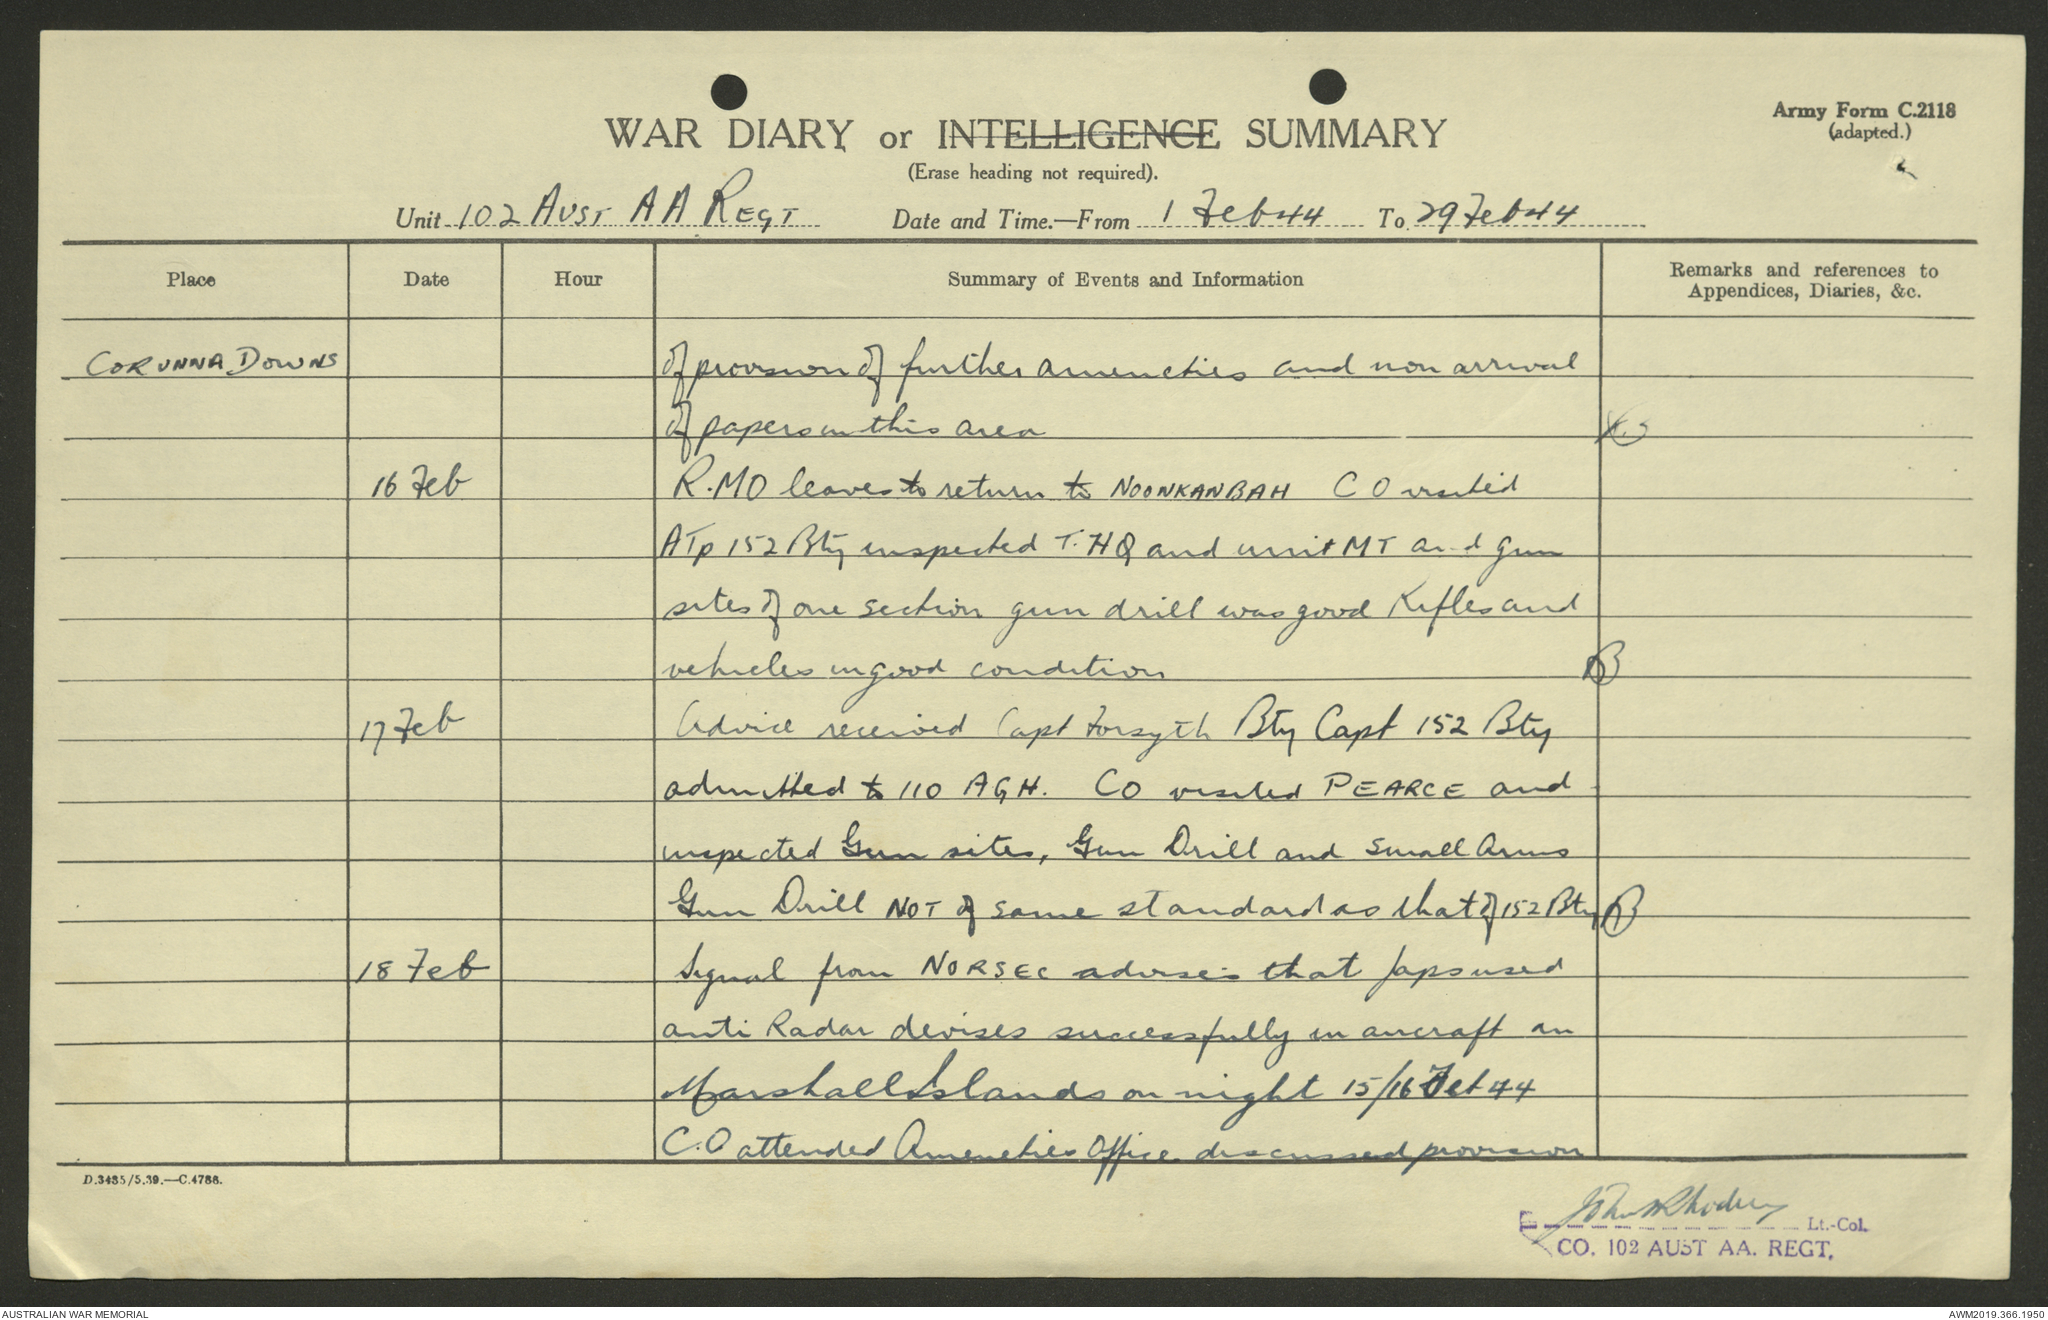 Army Form C.2118
(adapted.)
WAR DIARY or INTELLIGENCE SUMMARY
(Erase heading not required).
Unit 102 AUST AA REGT Date and Time.—From 1 Feb 44 To 29 Feb 44
Place Date Hour Summary of Events and Information Remarks and references to Appendices, Diaries, &c.
CORUNNA DOWNS of provision of further amenities and non arrival
of papers in this area
16 Feb R.MO leaves to return to NOONKANBAH CO visited
A Tp 152 Bty inspected T.HQ and unit MT and gun
sites of one section gun drill was good Rifles and
vehicles in good condition
17 Feb Advice received Capt Forsyth Bty Capt 152 Bty
admitted to 110 AGH. CO visited PEARCE and
inspected Gun sites, Gun Drill and Small Arms
Gun Drill NOT of same standard as that of 152 Bty
18 Feb Signal from NORSEC advises that Japs used
anti Radar devises successfully in aircraft in
Marshall Islands on night 15/16 Feb 44
C.O attended Amenities Office discussed provision
D.3485/5.39.—C.4788.
Lt.-Col.
CO. 102 AUST AA. REGT.
AUSTRALIAN WAR MEMORIAL AWM2019.366.1950